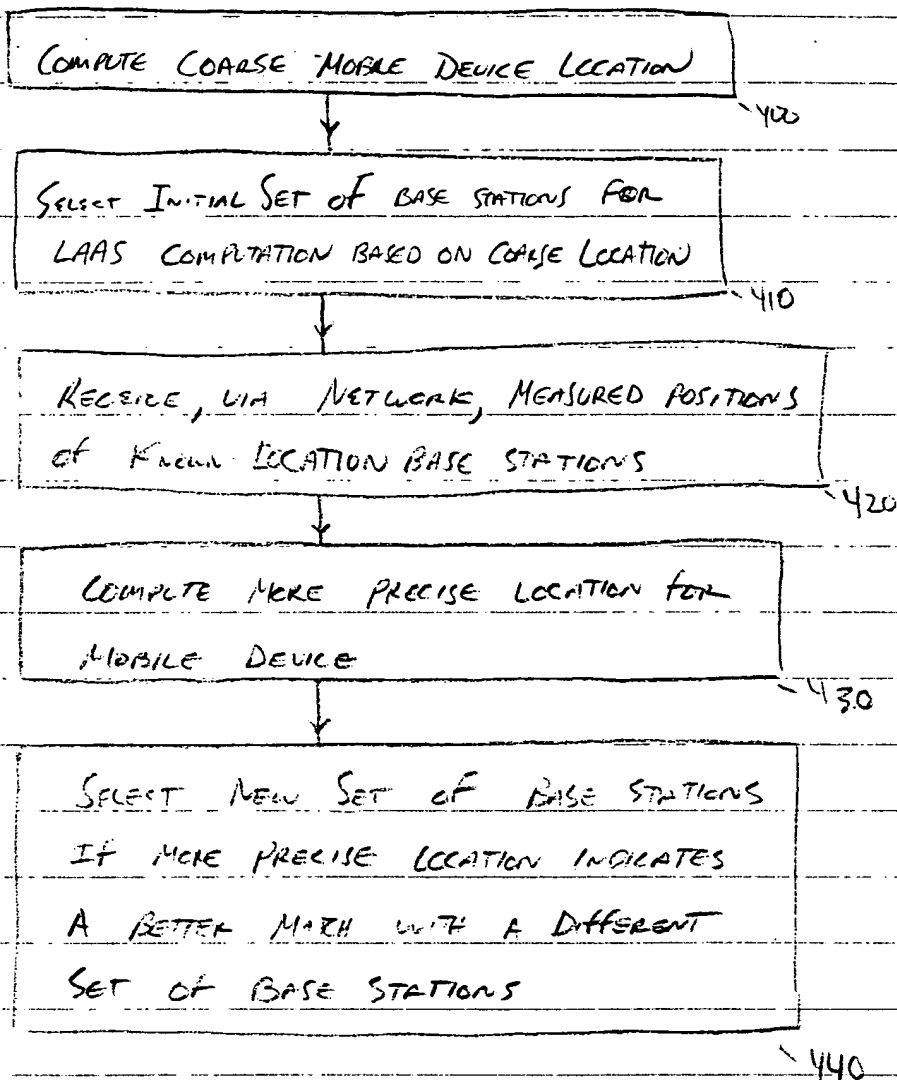 COMPUTE COARSE MOBILE DEVICE LOCATION
400
SELECT INITIAL SET OF BASE STATIONS FOR
LAAS COMPUTATION BASED ON COARSE LOCATION
410
RECEIVE, VIA NETWORK, MEASURED POSITIONS
OF KNOWN LOCATION BASE STATIONS
420
COMPUTE MORE PRECISE LOCATION FOR
MOBILE DEVICE
430
SELECT NEW SET OF BASE STATIONS
IF MORE PRECISE LOCATION INDICATES
A BETTER MATCH WITH A DIFFERENT
SET OF BASE STATIONS
440